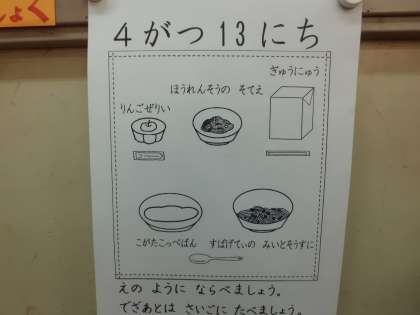 しょく
4がつ13にち
ぎゅうにゅう
ほうれんそうの そてえ
りんごぜりい
こがたこっぺぱん すぱげてぃの みいとそうすに
えの ように ならべましょう。
でざあとは さいごに たべましょう。